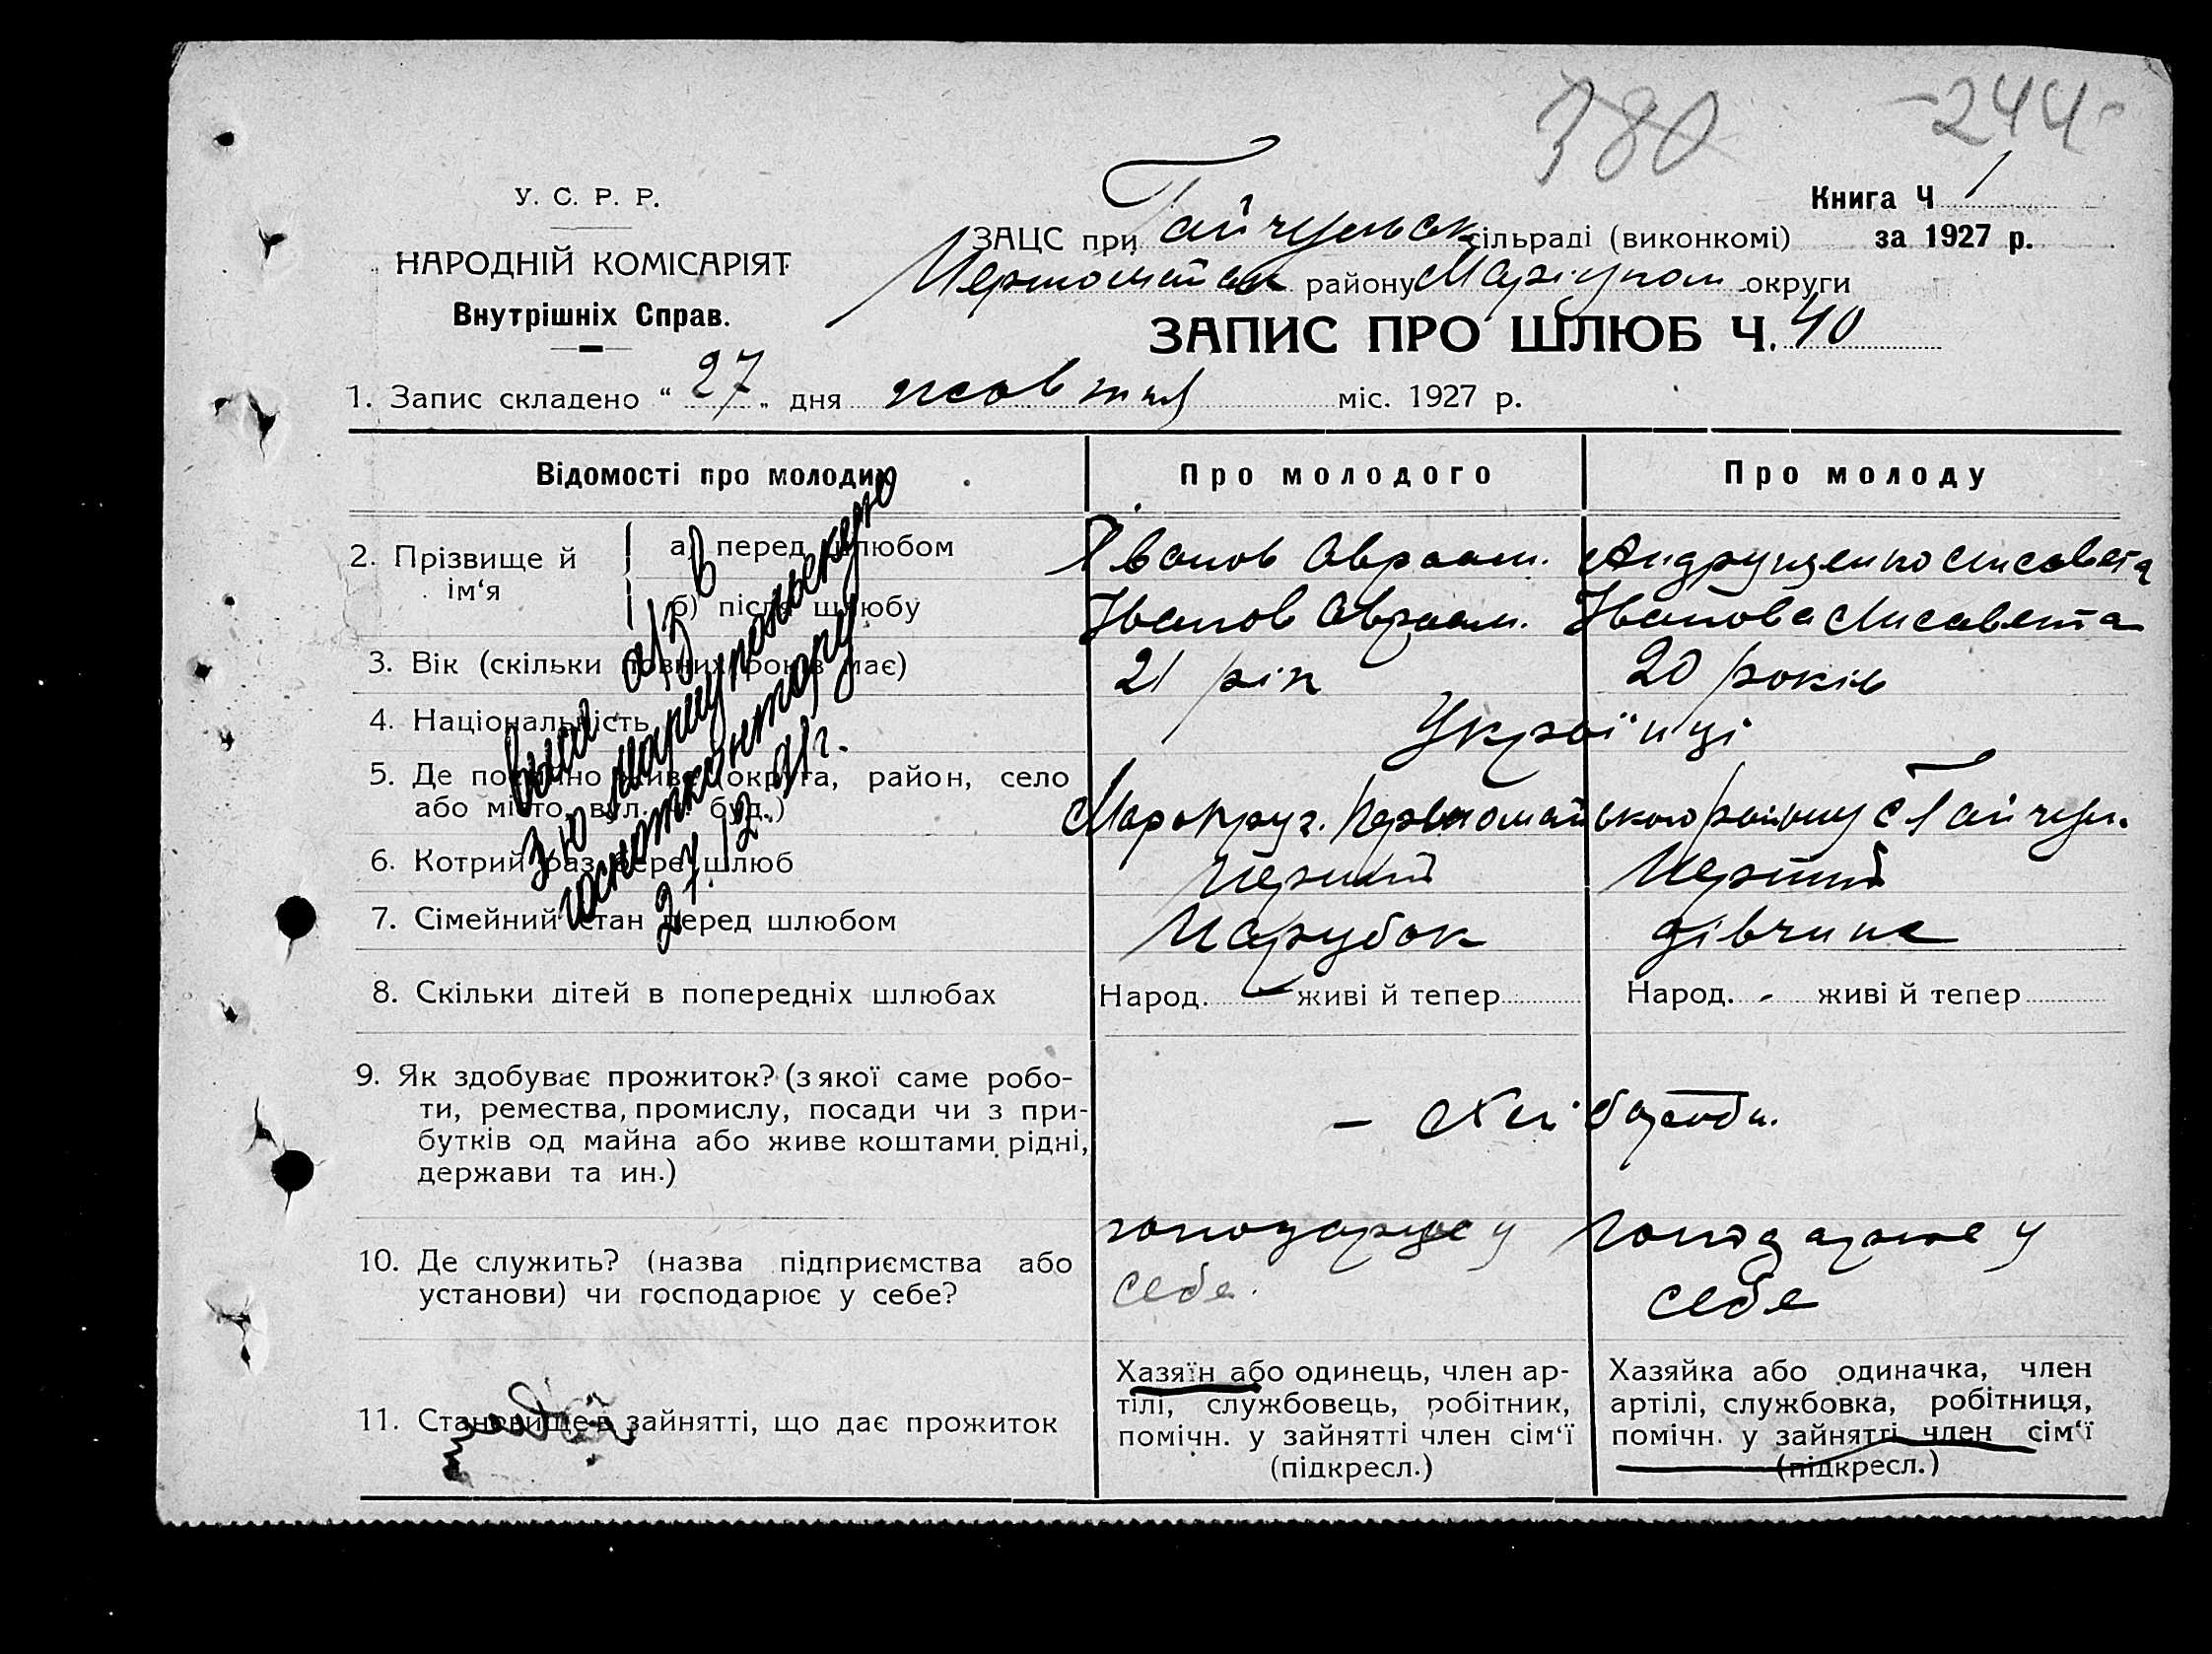 380 -244-
У. С. Р. Р.
НАРОДНІЙ КОМІСАРІЯТ
Внутрішніх Справ.
Книга Ч 1
ЗАЦС при Гайчульск сільраді (виконкомі) за 1927 р.
Першомайськ району Маріупол округи
ЗАПИС ПРО ШЛЮБ Ч. 40
1. Запис складено “ 27 „ дня жовтня міс. 1927 р.
Відомості про молодих Про молодого Про молоду
2. Прізвище й ім‘я
а) перед шлюбом Іванов Авраам. Андрущенко Лисавета
б) після шлюбу Іванов Авраам. Іванова Лисавета
3. Вік (скільки повних років має) 21 рік 20 років
4. Національність Українці
5. Де постійно живе (округа, район, село
або місто, вул. буд.) Мар округ. Первомайського району с Гайчул.
6. Котрий раз бере шлюб Перший Перший
7. Сімейний стан перед шлюбом Парубок дівчина
8. Скільки дітей в попередніх шлюбах Народ. — живі й тепер Народ. - живі й тепер
9. Як здобуває прожиток? (з якої саме робо-
ти, ремества, промислу, посади чи з при-
бутків од майна або живе коштами рідні,
держави та ин.)
— Хлібороби.
10. Де служить? (назва підприємства або
установи) чи господарює у себе?
господарює у
себе.
господарює у
себе
11. Становище в зайнятті, що дає прожиток
Хазяїн або одинець, член ар-
тілі, службовець, робітник,
помічн. у зайнятті член сім‘ї
(підкресл.)
Хазяйка або одиначка, член
артілі, службовка, робітниця,
помічн. у зайнятті член сім‘ї
(підкресл.)
а/з в
3-ю Мариупольскую
госнотконтору
27/12 г.